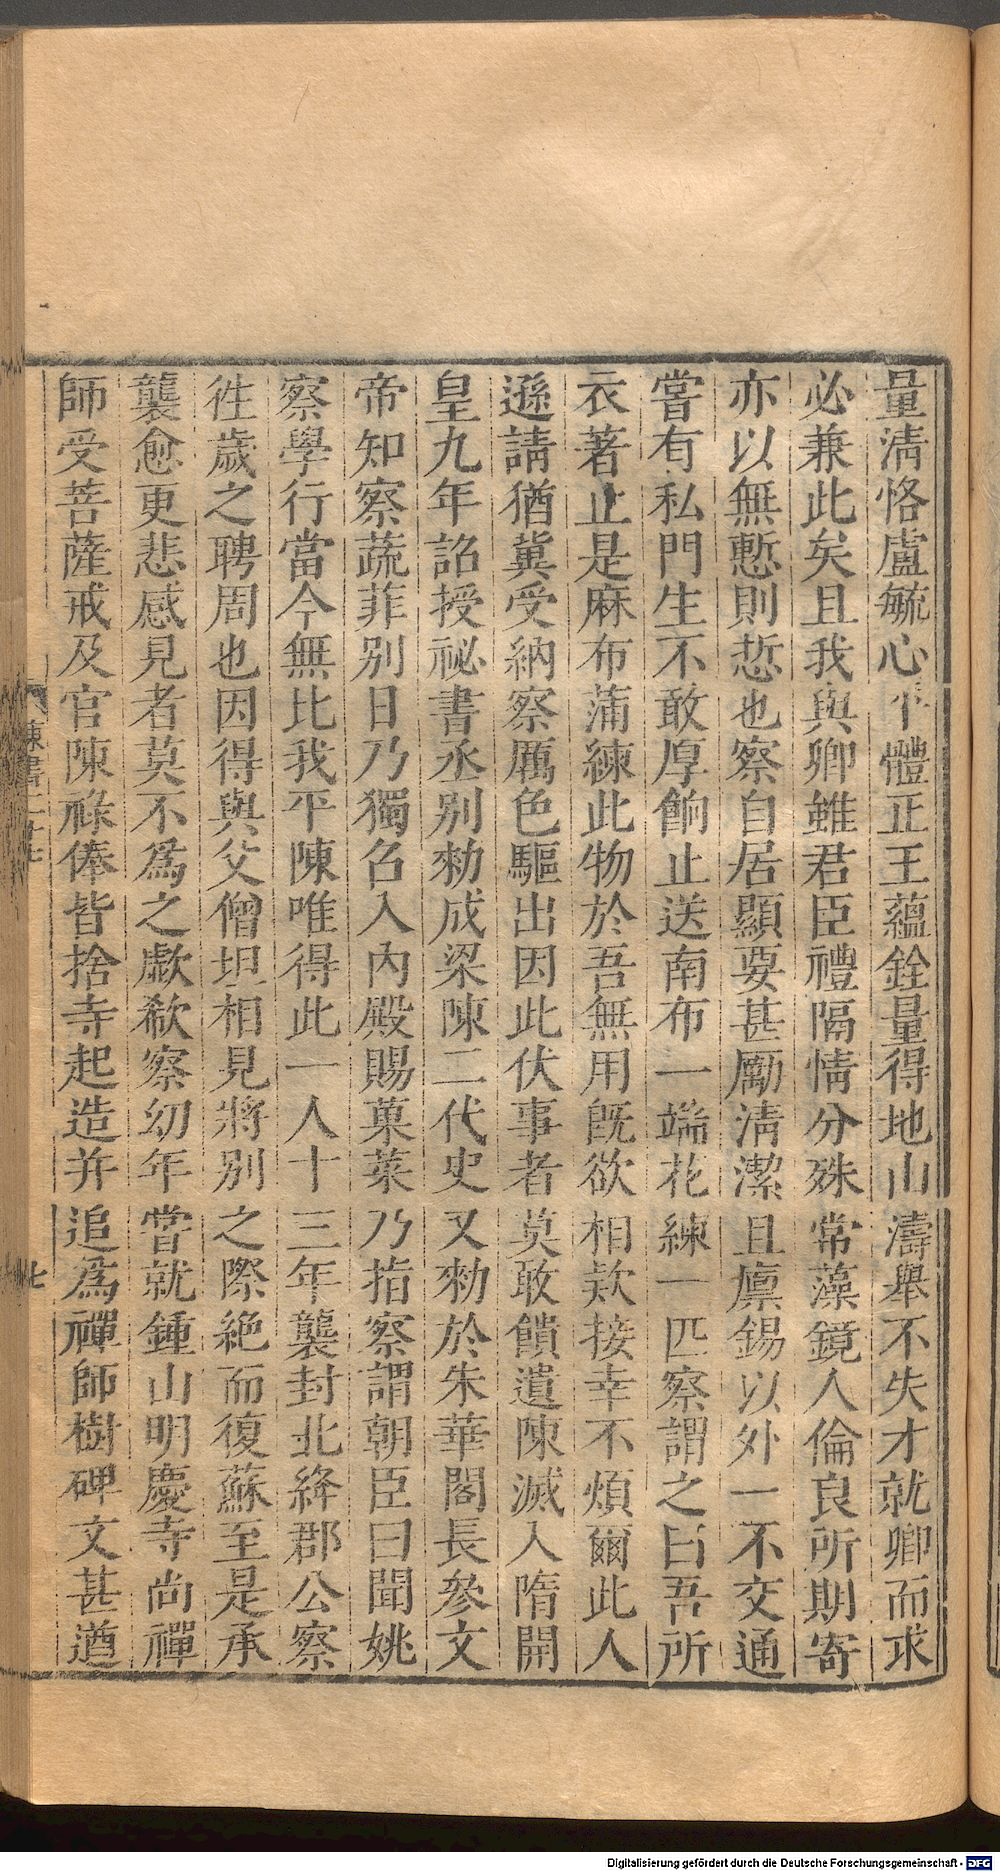 量淸恪盧毓心平體正王蘊銓量得地山濤舉不失才就卿而求
必兼此矣且我與卿雖君臣禮隔情分殊常藻鏡人倫良所期寄
亦以無慙則悊也察自居顯要甚勵淸潔且廪錫以外一不交通
嘗有私門生不敢厚餉止送南布一端花練一匹察謂之曰吾所
衣著止是麻布蒲練此物於吾無用旣欲相欵接幸不煩爾此人
遜請猶冀受納察厲色驅出因此伏事者莫敢饋遺陳滅入隋開
皇九年詔授祕書丞别勑成梁陳二代史又勑於朱華閣長參文
帝知察蔬菲别日乃獨召入內殿賜菓菜乃指察謂朝臣曰聞姚
察學行當今無比我平陳唯得此一人十三年襲封北絳郡公察
徃歲之聘周也因得與父僧坦相見將别之際絶而復蘇至是承
襲愈更悲感見者莫不爲之歔欷察幼年嘗就鍾山明慶寺尚禪
師受菩薩戒及官陳祿俸皆捨寺起造并追爲禪師樹碑文甚遒
陳書二十七
七
Digitalisierung gefördert durch die Deutsche Forschungsgemeinschaft - DFG